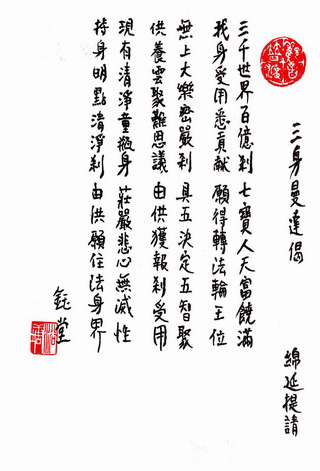 三身曼達偈
綿延提請
三千世界百億刹 七寶人天當饒滿
我身受用悉貢獻 願得轉法輪王位
無上大樂密嚴刹 具五決定五智聚
供養雲聚難思議 由供獲報刹受用
現有清淨童瓶身 莊嚴悲心無滅性
持身明點清淨刹 由供願住法身界
鈺堂